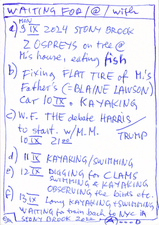 WAITING FOR / @ / with
MON
a) 9 IX 2024 STONY BROOK
2 OSPREYS on tree @
M's house, eating fish
b) Fixing FLAT TIRE of M.'s
Father's (=BLAINE LAWSON)
car 10 IX. + KAYAKING
c) W.F. THE debate HARRIS/
to start. w/M.M. TRUMP
10 IX 2100
d) 11 IX KAYAKING/SWIMMING
e) 12 IX DIGGING for CLAMS
SWIMMING & KAYAKING
OBSERVING the birds etc.
f) 13 IX Long KAYAKING + SWIMMING
WAITING for train back to NYC in
STONY BROOK 2024